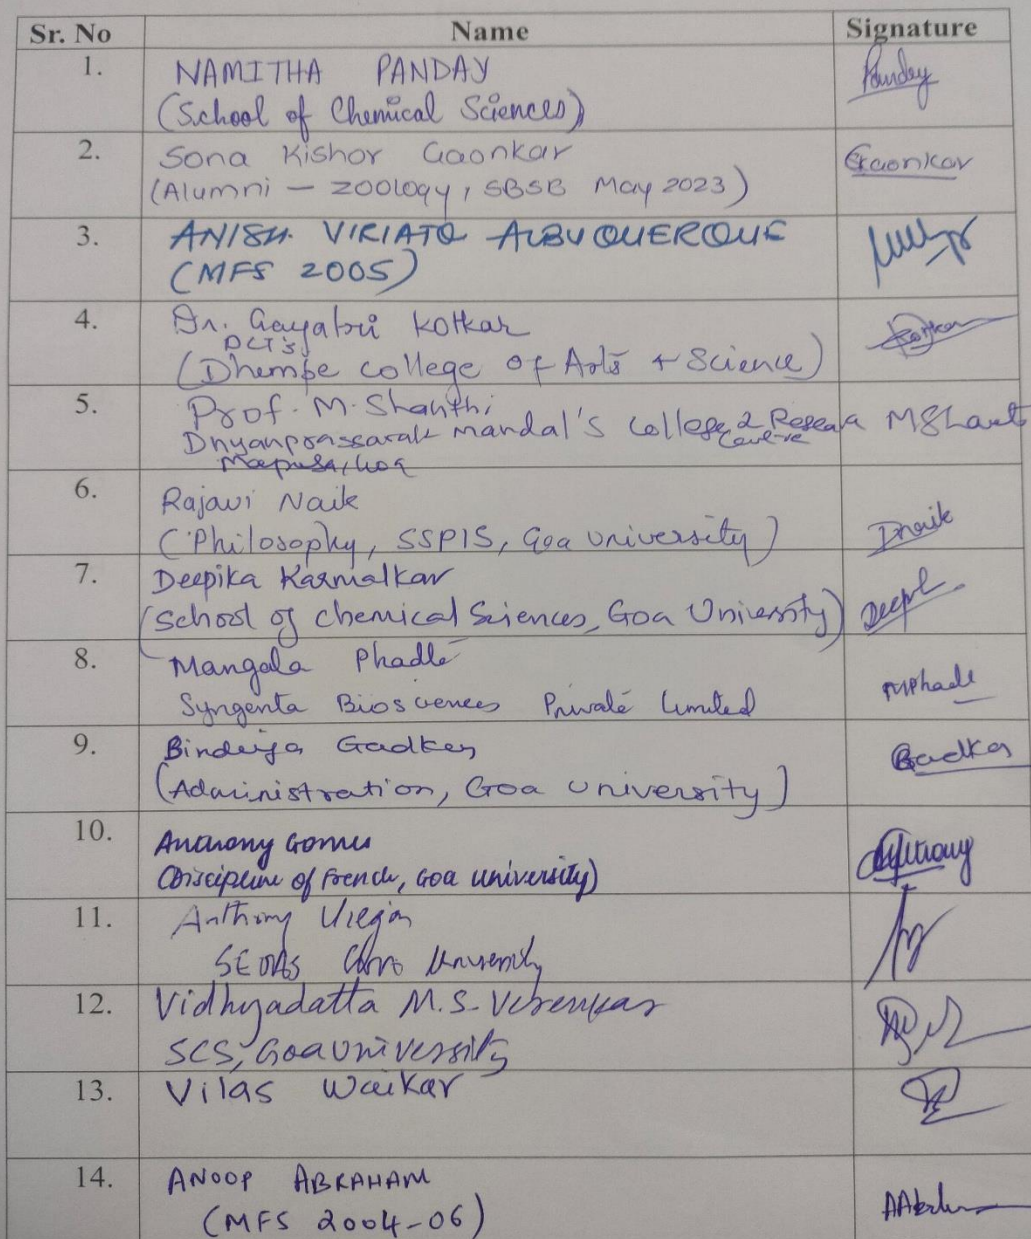 Sr. No Name Signature
1. NAMITHA PANDAY Panday
(School of Chemical Sciences)
2. Sona Kishor Gaonkar Gaonkar
(Alumni – Zoology, SBSB May 2023)
3. ANISH VIRIATO ALBUQUERQUE
(MFS 2005)
4. Dr. Gayatri Kotkar
DCT's
(Dhempe college of Arts + Science)
5. Prof. M. Shanthi
Dnyanprassarak Mandal's College & Research MShanti
Centre
Mapusa, Goa
6. Rajavi Naik
(Philosophy, SSPIS, Goa University)
7. Deepika Karmalkar
(School of Chemical Sciences, Goa University)
8. Mangala Phadte
Syngenta Biosciences Private Limited
9. Gadkar
(Administration, Goa University)
10. Anthony Gomes Anthony
(Discipline of French, Goa University)
11. Anthony Viegas
Goa University
12. Vidhyadatta M.S. Verenkar
SCS, Goa University
13. Vilas Waikar
14. ANOOP ABRAHAM
(MFS 2004-06)